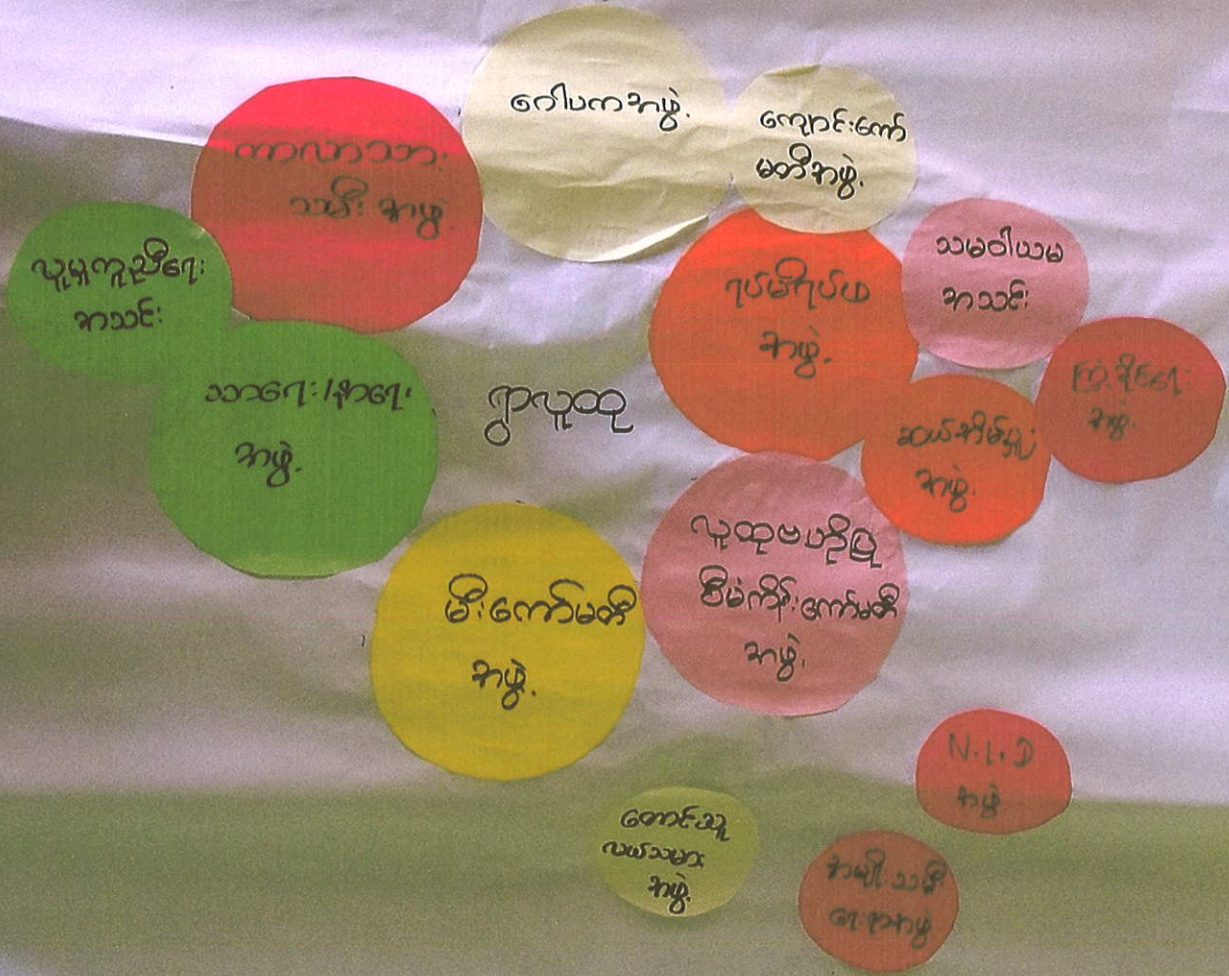 ဂေါပကအဖွဲ့
ကျောင်းကော်
မတီအဖွဲ့
ကာလသား
သမီး အဖွဲ့
လူမှုကူညီရေး
အသင်း
သမဝါယမ
အသင်း
ရပ်မိရပ်ဖ
အဖွဲ့
သာရေး/နာရေး
အဖွဲ့
ရွာလူထု
ကြံ့ခိုင်ရေး
အဖွဲ့
ဆယ်အိမ်မှူး
အဖွဲ့
လူထုဗဟိုပြု
စီမံကိန်းကော်မတီ
အဖွဲ့
မီးကော်မတီ
အဖွဲ့
N.L.D
အဖွဲ့
တောင်သူ
လယ်သမား
အဖွဲ့
အမျိုးသမီး
ရေးရာအဖွဲ့